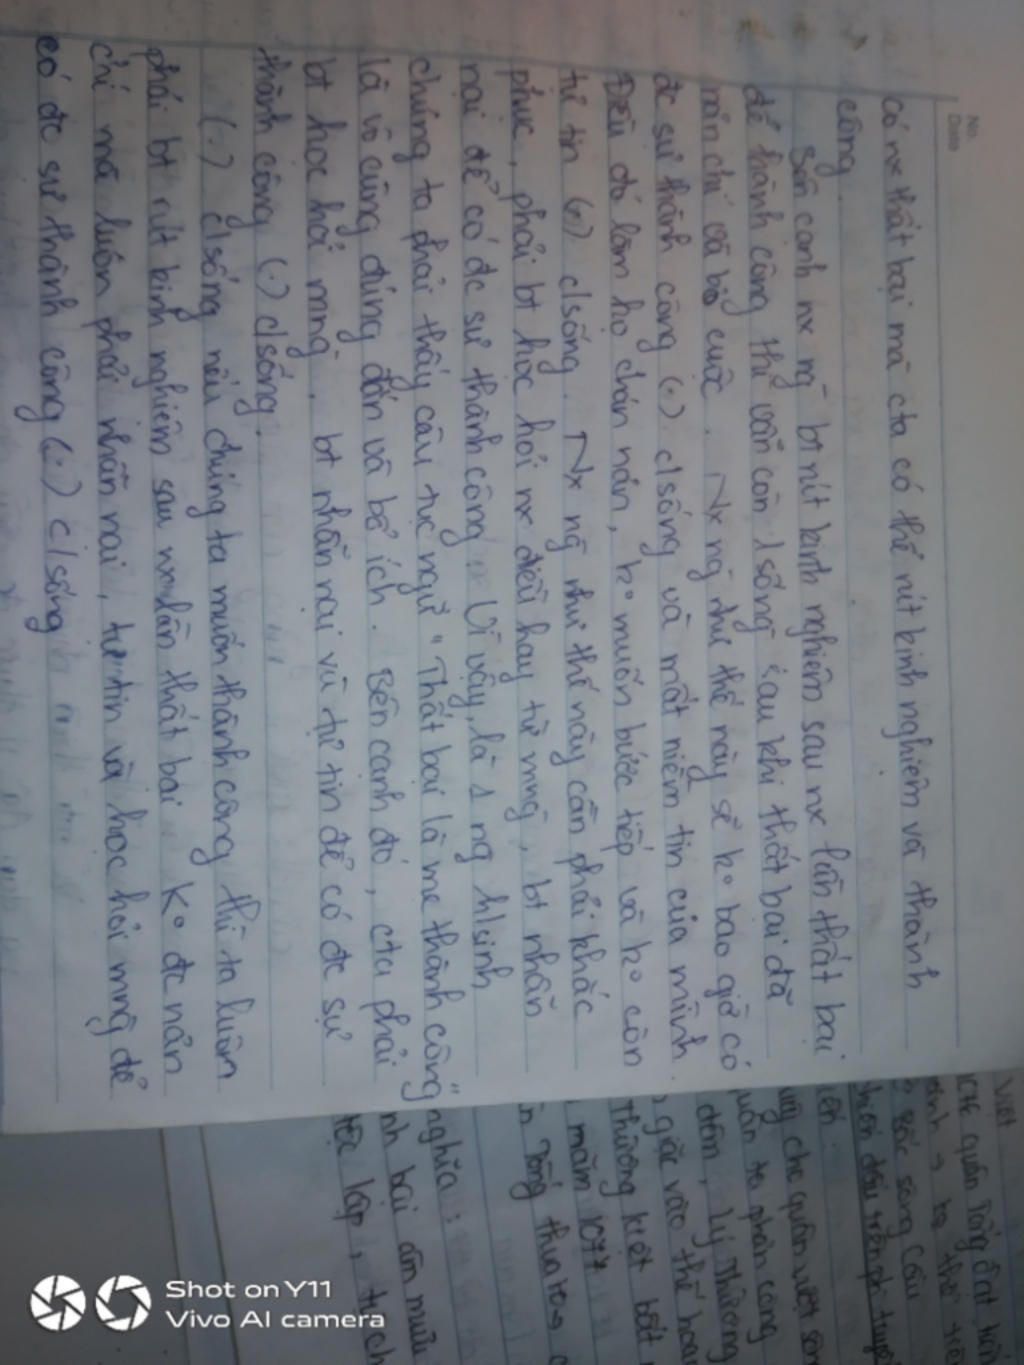 No.
Date
có nx thất bại mà cta có thể rút kinh nghiệm và thành
công.
Bên cạnh nx ng~ bt rút kinh nghiệm sau nx lần thất bại
để thành công thì vẫn còn 1 số ng~ sau khi thất bại đã
nản chí và bỏ cuộc. Nx ng~ như thế này sẽ k° bao giờ có
đc sự thành công (.) c/sống và mất niềm tin của mình.
Điều đó làm họ chán nản, k° muốn bước tiếp và k° còn
tự tin (.) c/sống. Nx ng~ như thế này cần phải khắc
phục, phải bt học hỏi nx điều hay từ mng~, bt nhẫn
nại để có đc sự thành công. Vì vậy, là 1 ng h/sinh
chúng ta phải thấy câu tục ngữ "Thất bại là mẹ thành công"
là vô cùng đúng đắn và bổ ích. Bên cạnh đó, cta phải
bt học hỏi mng~, bt nhẫn nại và tự tin để có đc sự
thành công (.) c/sống.
(.) c/sống nếu chúng ta muốn thành công thì ta luôn
phải bt rút kinh nghiệm sau lần thất bại. K° đc nản
chí mà luôn phải nhẫn nại, tự tin và học hỏi mng~ để
có đc sự thành công (.) c/sống
Việt
1076 quân Tống đánh
sông Cầu
cho quân
quân ta phản công
đêm, Lý Thường
giặc vào thế
Thường Kiệt
năm 1077
Tống thua
nghĩa:
bại âm mưu
độc lập,
Shot on Y11
Vivo AI camera